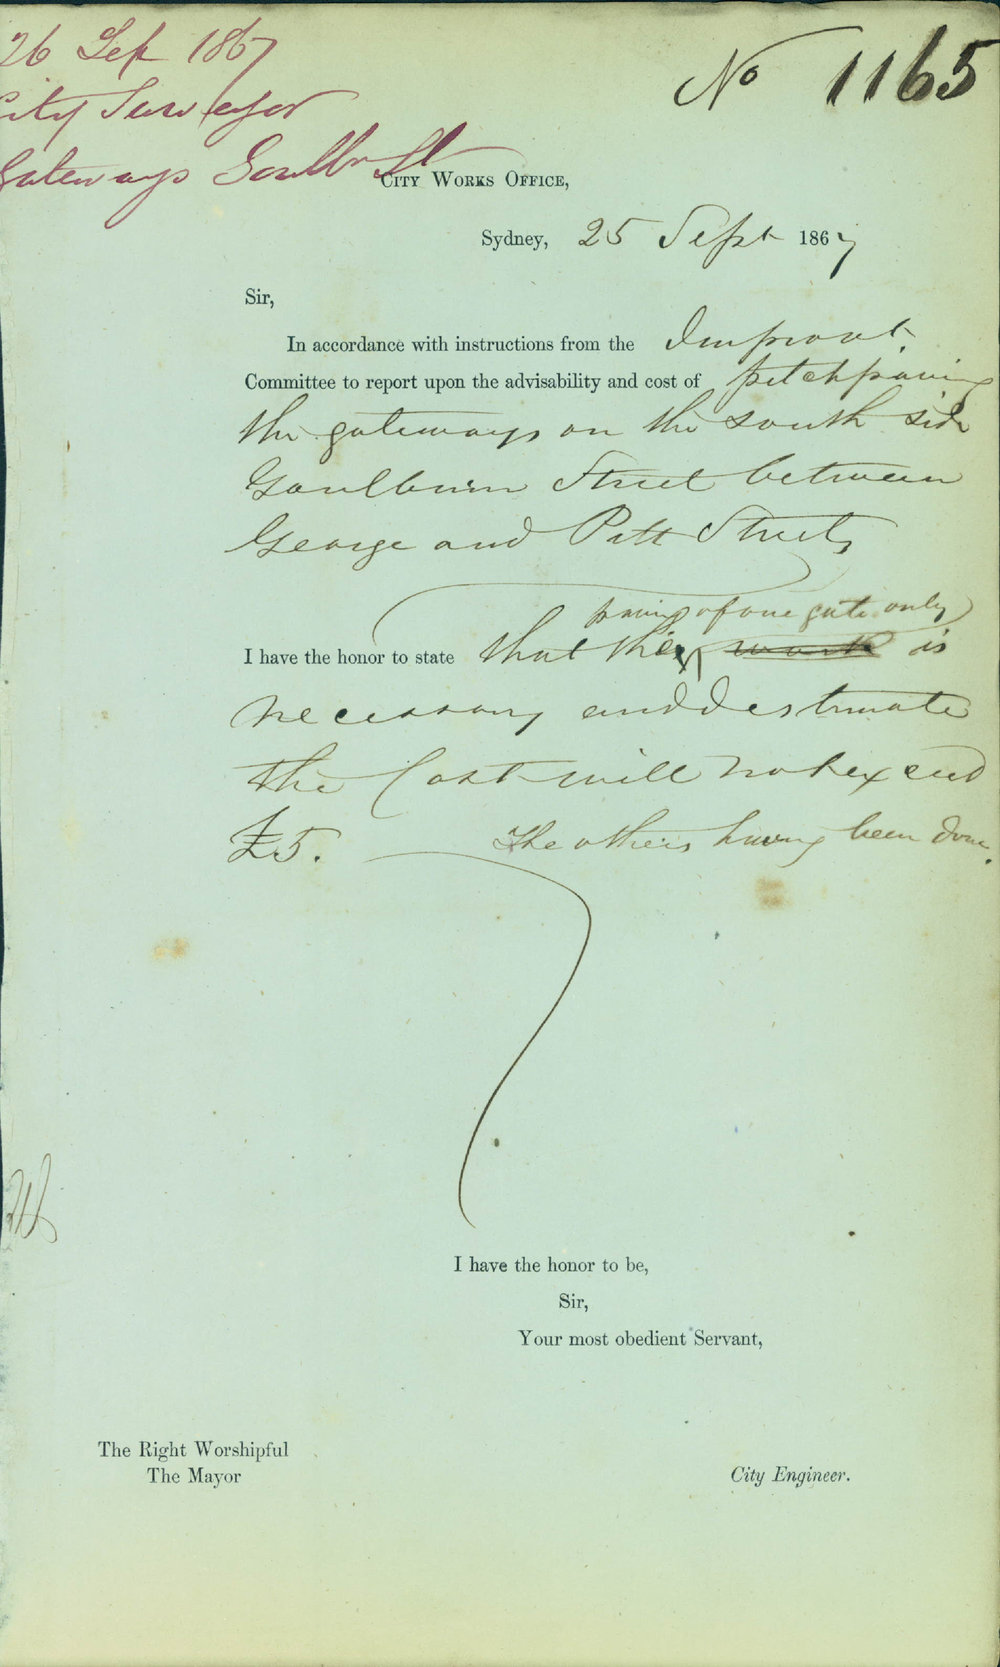 26 Sep 1867
City Surveyor
Gateways Goulbn St
No 1165
CITY WORKS OFFICE,
Sydney, 25 Sept 1867
Sir,
In accordance with instructions from the Improvt.
Committee to report upon the advisability and cost of pitchpaving
the gateways on the south side
Goulburn Street between
George and Pitt Streets
paving of one gate only
I have the honor to state that the work is
necessary and estimate
the Cost will not exceed
£5. The others having been done.
I have the honor to be,
Sir,
Your most obedient Servant,
The Right Worshipful
The Mayor
City Engineer.